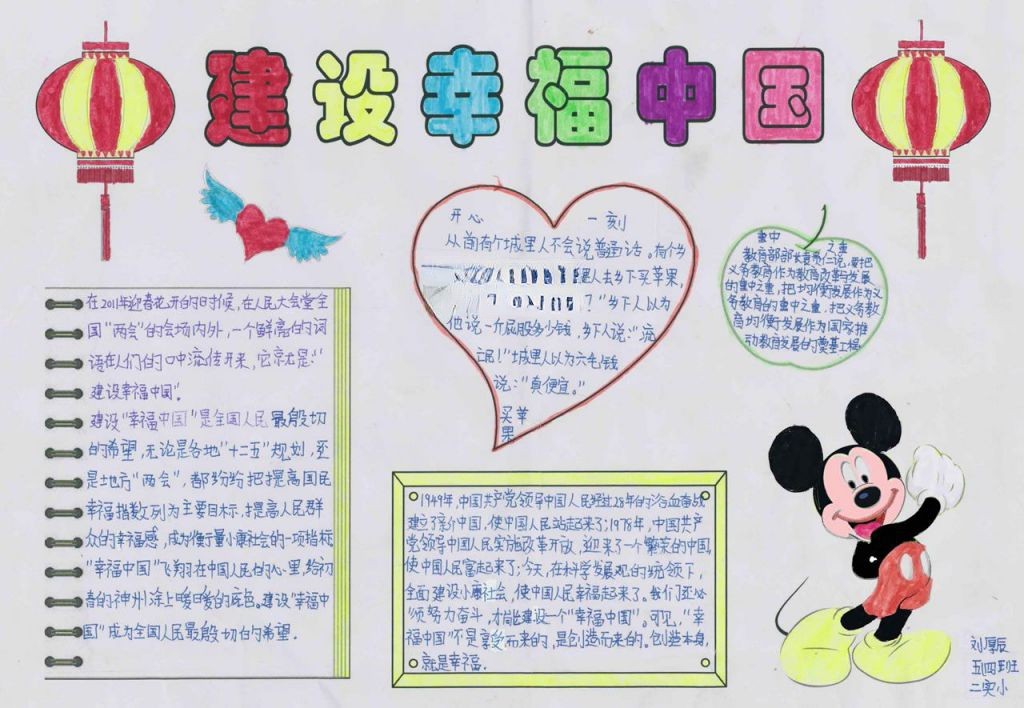 建设幸福中国
在2011年迎春花开的时候,在人民大会堂全
国"两会"的会场内外,一个鲜亮的词
语在人们的口中流传开来,它就是:"
建设幸福中国".
建设"幸福中国"是全国人民最殷切
的希望,无论是各地"十二五"规划,还
是地方"两会",都纷纷把提高国民
幸福指数列为主要目标,提高人民群
众的幸福感,成为衡量小康社会的一项指标
"幸福中国"飞翔在中国人民的心里,给初
春的神州涂上暖暖的底色。建设"幸福中
国"成为全国人民最殷切的希望.
开心一刻
从前有个城里人不会说普通话。有个
里人去乡下买苹果,
?"乡下人以为
他说一斤屁股多少钱,乡下人说:"流
氓!"城里人以为六毛钱
说:"真便宜。"
买苹
果
重中之重
教育部部长袁贵仁说,要把
义务教育作为教育改革与发展
的重中之重,把均衡发展作为义
务教育的重中之重,把义务教
育均衡发展作为国家推
动教育发展的奠基工程
1949年,中国共产党领导中国人民经过28年的浴血奋战
建立了新中国,使中国人民站起来了;1978年,中国共产
党领导中国人民实施改革开放,迎来了一个繁荣的中国,
使中国人民富起来了;今天,在科学发展观的统领下,
全面建设小康社会,使中国人民幸福起来了。我们还必
须努力奋斗,才能建设一个"幸福中国"。可见,"幸
福中国"不是享受而来的,是创造而来的。创造本身,
就是幸福.
刘厚辰
五(四)班
二实小